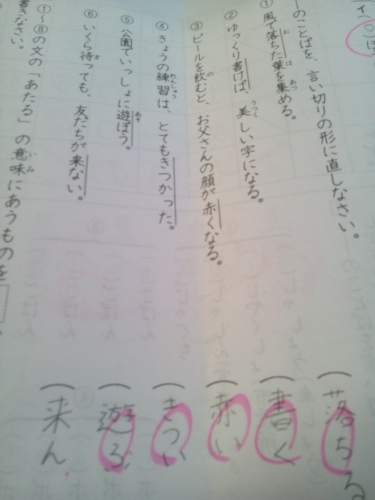 のことばを、言い切りの形に直しなさい。
① 風で落ちた葉を集める。(落ちる
② ゆっくり書けば、美しい字になる。(書く
③ ビールを飲むと、お父さんの顔が赤くなる。(赤い
④ きょうの練習は、とてもきつかった。(きつい
⑤ 公園でいっしょに遊ぼう。(遊ぶ
⑥ いくら待っても、友だちが来ない。(来ん
①〜⑧の文の「あたる」の意味にあうものを
書きなさい。